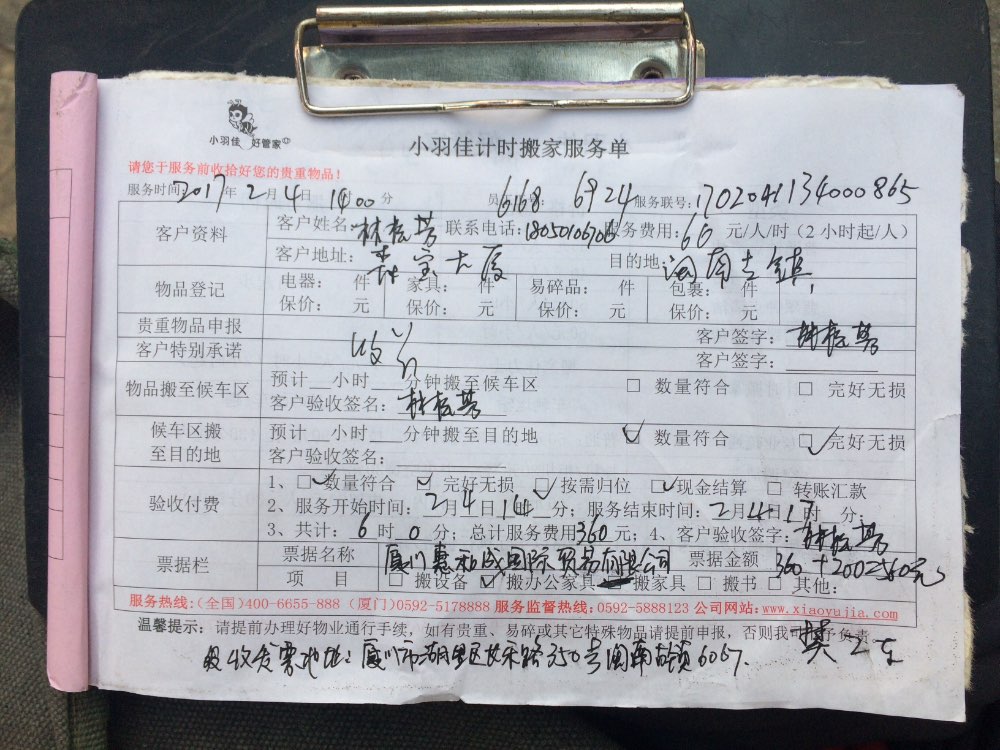 小羽佳 好管家
小羽佳计时搬家服务单
请您于服务前收拾好您的贵重物品!
服务时间2017年2月4日1400分 员6168 6924 服务联号:1702041134000865
客户资料 客户姓名:林松芳 联系电话:18050106706服务费用:60 元/人/时(2小时起/人)
客户地址: 宝大厦 目的地:闽南古镇
物品登记 电器: 件 家具: 件 易碎品: 件 包裹: 件
保价: 元 保价: 元 保价: 元 保价: 元
贵重物品申报 客户签字:林松芳
客户特别承诺 客户签字:
物品搬至候车区 预计__小时__分钟搬至候车区 □ 数量符合 □ 完好无损
客户验收签名:林松芳
候车区搬至目的地 预计__小时__分钟搬至目的地 ☑ 数量符合 ☑ 完好无损
客户验收签名:
验收付费 1、☑数量符合 ☑完好无损 ☑按需归位 ☑现金结算 □ 转账汇款
2、服务开始时间:2月4日14 分;服务结束时间:2月4日17 分;
3、共计:6时0分;总计服务费用360元;4、客户验收签字:林松芳
票据栏 票据名称 厦门惠和成国际贸易有限公司 票据金额 360+200=560元
项 目 □ 搬设备 ☑ 搬办公家具 搬家具 □ 搬书 □ 其他:
服务热线:(全国)400-6655-888 (厦门)0592-5178888 服务监督热线:0592-5888123 公司网站:www.xiaoyujia.com
温馨提示:请提前办理好物业通行手续,如有贵重、易碎或其它特殊物品请提前申报,否则我司不予负责
收发票地址:厦门市湖里区长乐路350号闽南古镇6067.